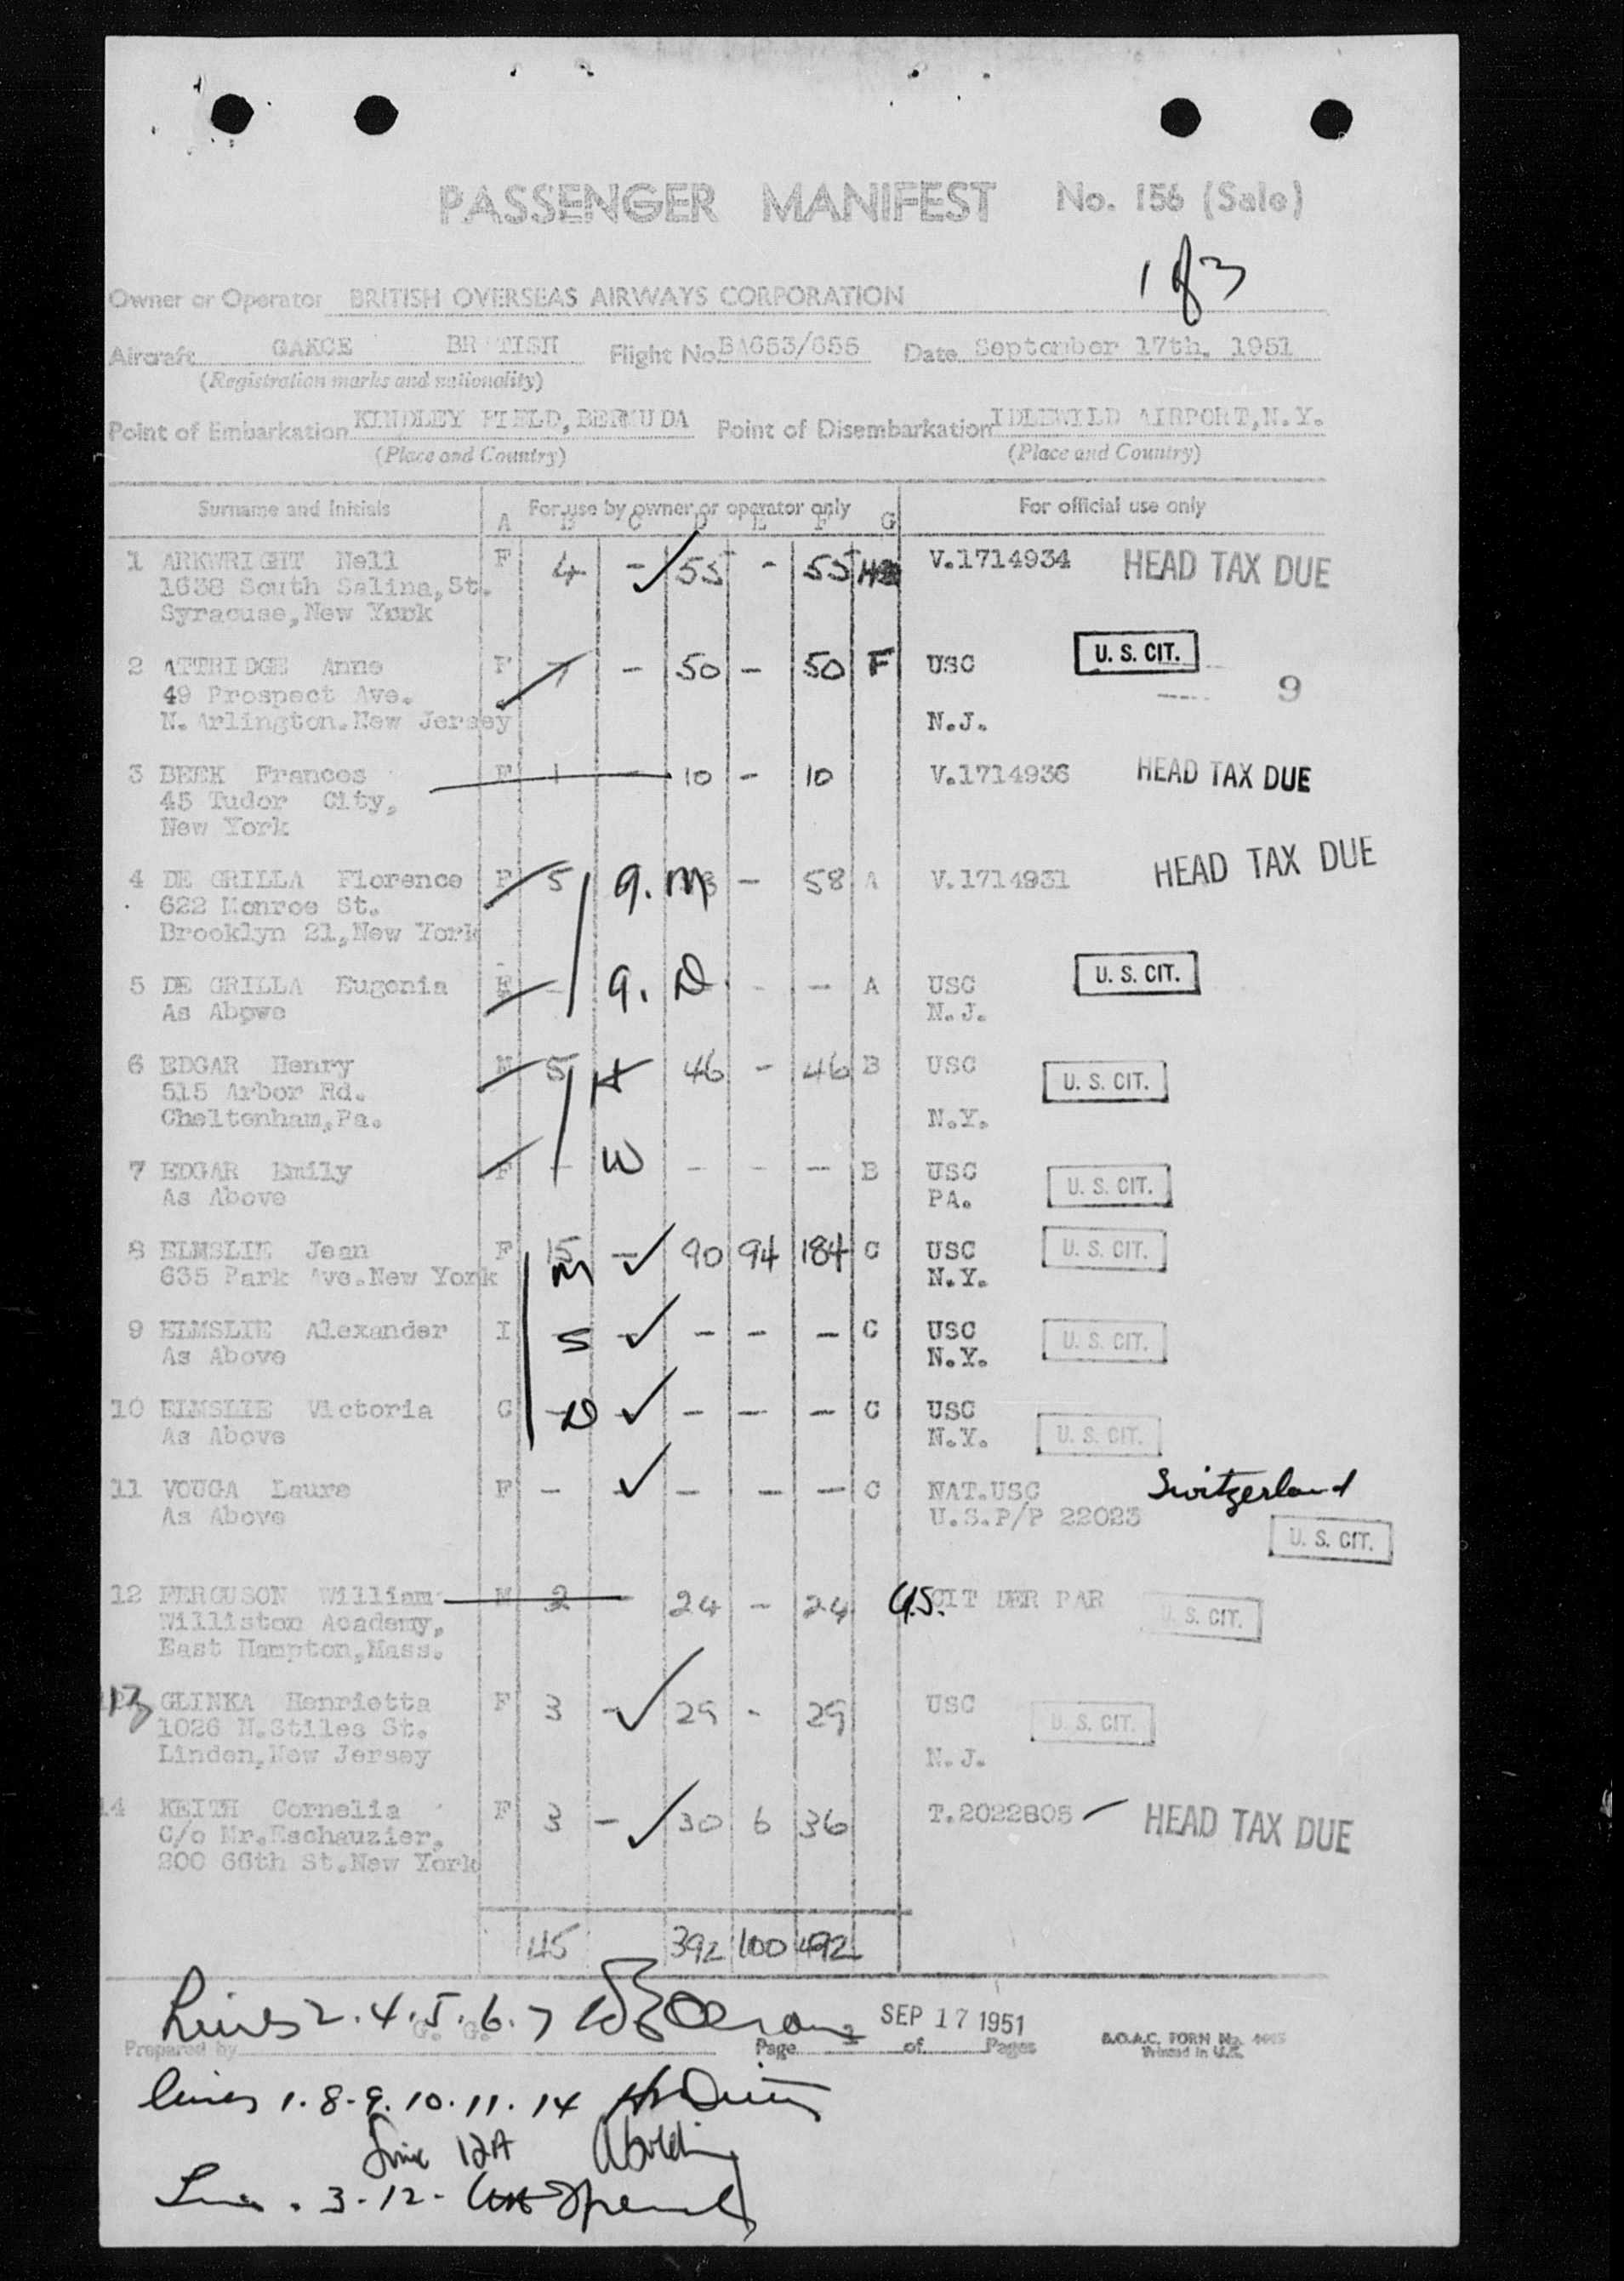 PASSENGER MANIFEST No. 156 (Sale)
1 of 3
Owner or Operator BRITISH OVERSEAS AIRWAYS CORPORATION
Aircraft GAKCE BR TISH Flight No BA653/655 Date September 17th. 1951
(Registration marks and nationality)
Point of Embarkation KINDLEY FIELD, BERMUDA Point of Disembarkation IDLEWILD AIRPORT, N.Y.
(Place and Country) (Place and Country)
Surname and Initials For use by owner or operator only For official use only
A B C D E F G
1 ARKWRIGHT Nell F 4 - 55 - 55 V.1714934 HEAD TAX DUE
1638 South Salina, St.
Syracuse, New York
2 ATTRIDGE Anne F - 50 - 50 F USC U. S. CIT.
49 Prospect Ave. 9
N. Arlington. New Jersey N.J.
3 BEEK Frances F 1 - 10 - 10 V.1714936 HEAD TAX DUE
45 Tudor City,
New York
4 DE GRILLA Florence F 5 G.M - 58 A V.1714931 HEAD TAX DUE
622 Monroe St.
Brooklyn 21, New York
5 DE GRILLA Eugenia F - G. D. - - A USC U. S. CIT.
As Above N.J.
6 EDGAR Henry M 5 H 46 - 46 B USC U. S. CIT.
515 Arbor Rd.
Cheltenham, Pa. N.Y.
7 EDGAR Emily F - W - - - B USC U. S. CIT.
As Above PA.
8 ELMSLIE Jean F 15 M - 90 94 184 C USC U. S. CIT.
635 Park Ave. New York N.Y.
9 ELMSLIE Alexander I S - - - - C USC U. S. CIT.
As Above N.Y.
10 ELMSLIE Victoria C - D - - - - C USC U. S. CIT.
As Above N.Y.
11 VOUGA Laure F - - - - C NAT.USC Switzerland
As Above U.S.P/P 22023 U. S. CIT.
12 FERGUSON William M 2 - 24 - 24 U.S. CIT DER PAR U. S. CIT.
Williston Academy,
East Hampton, Mass.
13 GLINKA Henrietta F 3 - 29 - 29 USC U. S. CIT.
1026 N. Stiles St.
Linden, New Jersey N.J.
14 KEITH Cornelia F 3 - 30 6 36 T.2022805 HEAD TAX DUE
C/o Mr. Eschauzier,
200 66th St. New York
45 392 100 492
Lines 2. 4. 5. 6. 7 SEP 17 1951
G. G.
Prepared by Page of Pages B.O.A.C. FORM No.
Printed in U.K.
lines 1. 8. 9. 10. 11. 14
Line 12A
3-12-